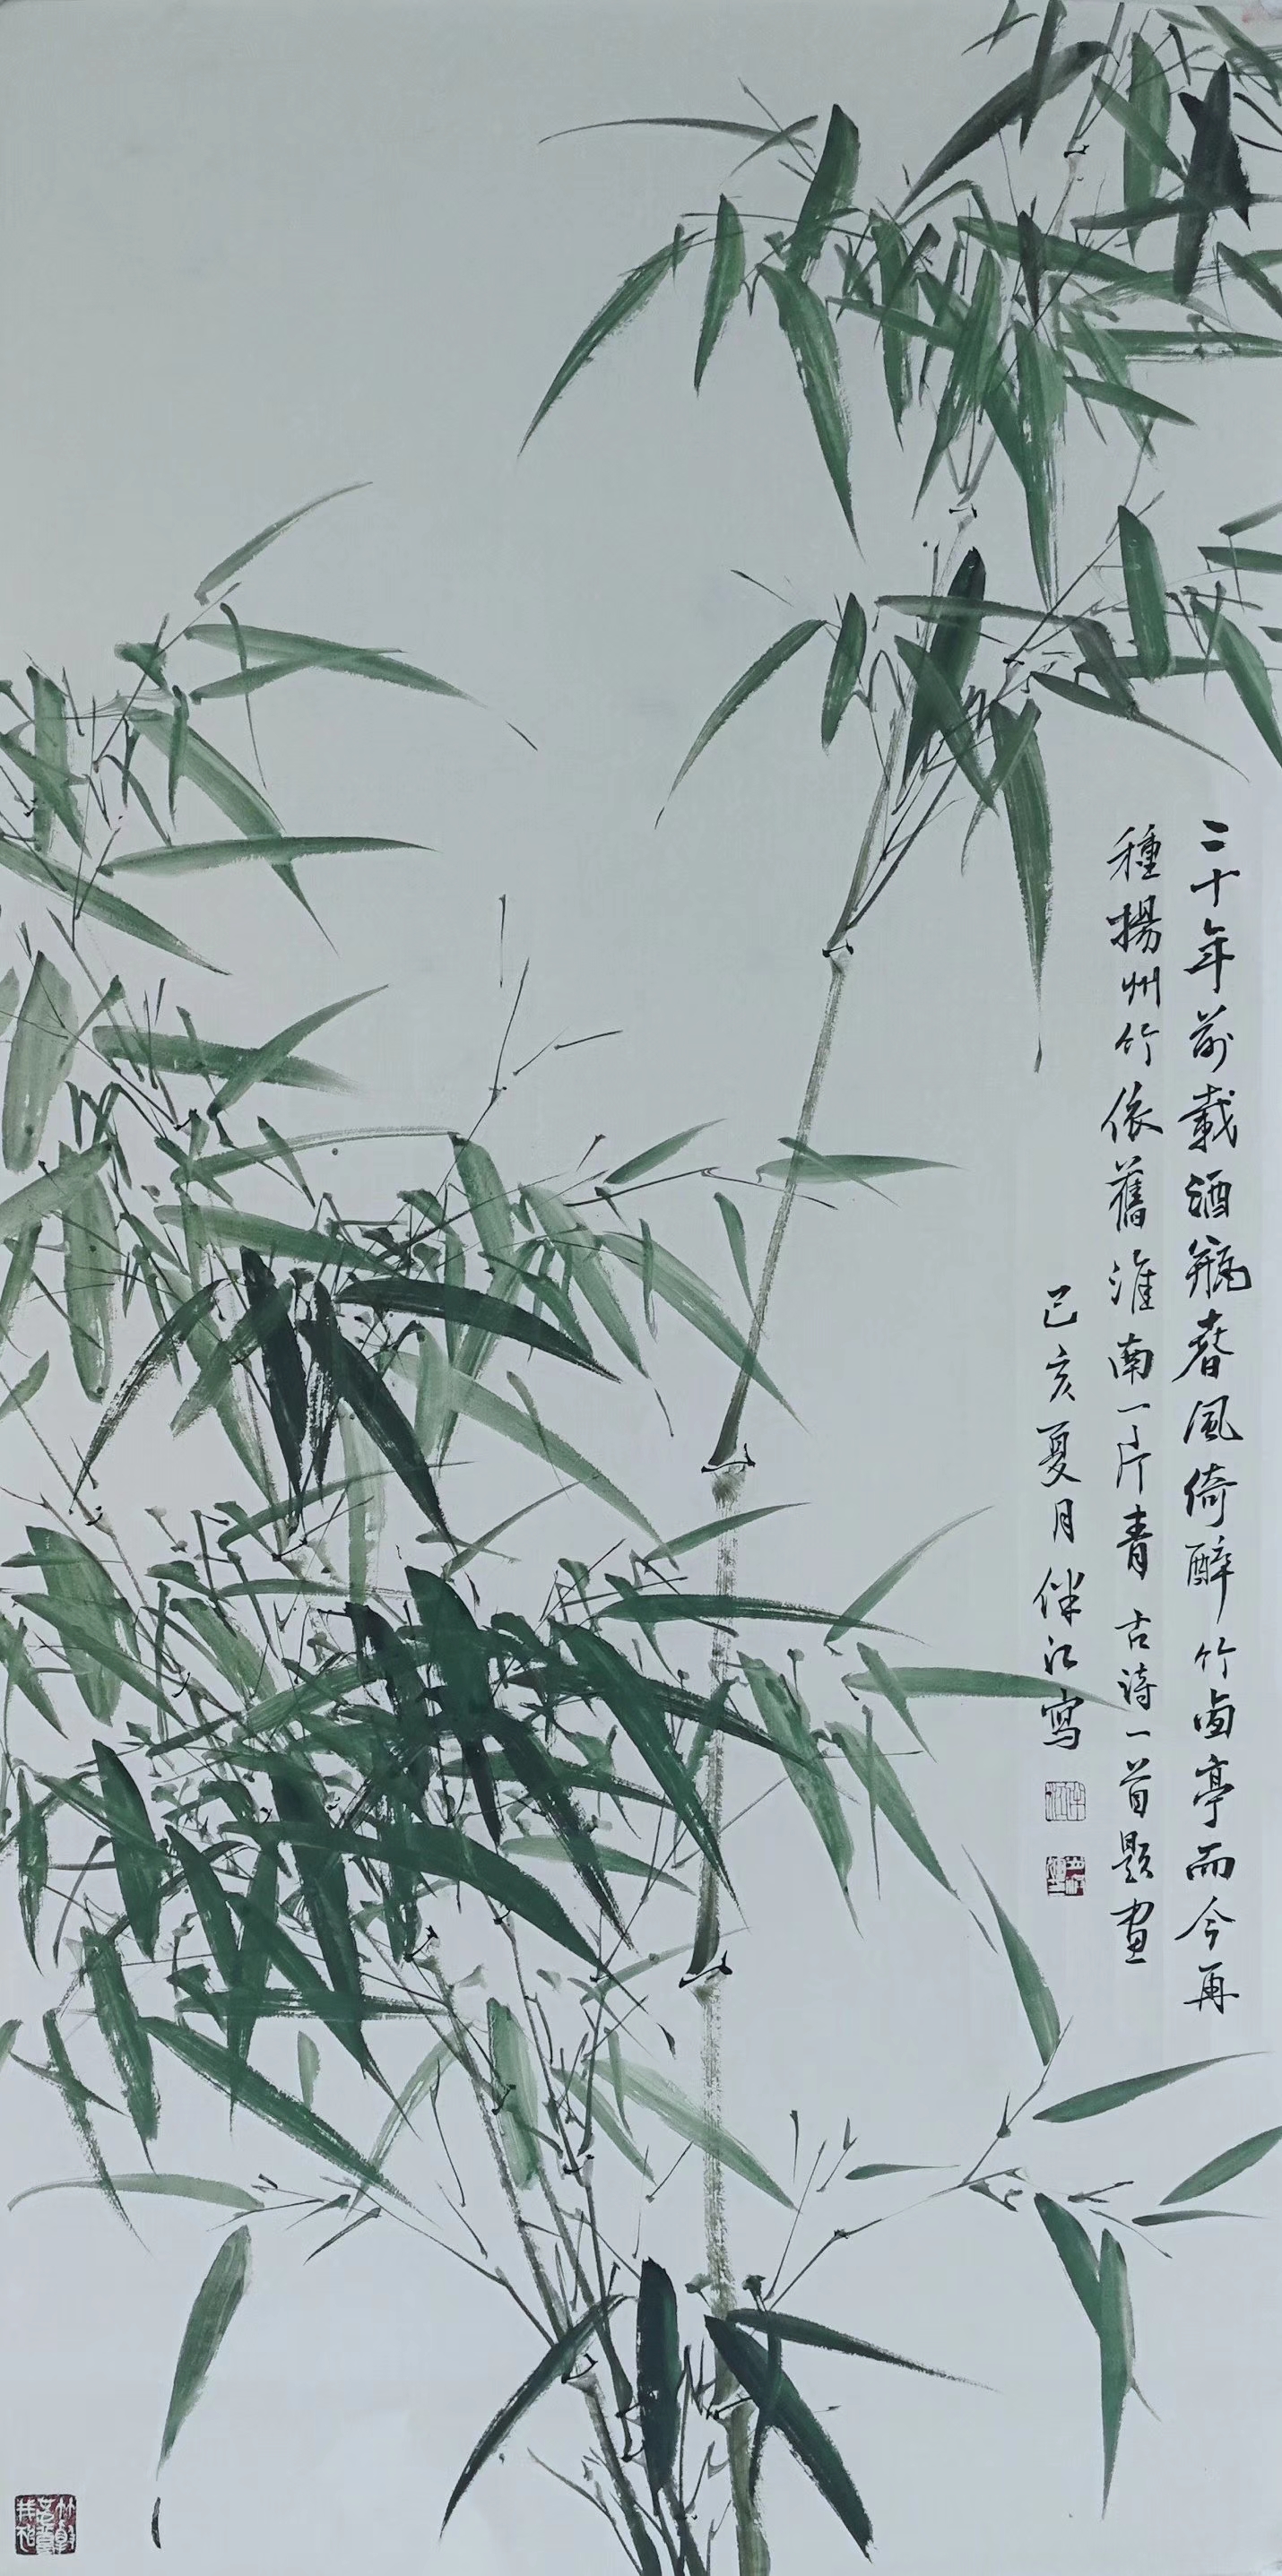 二十年前載酒瓶春風倚醉竹西亭而今再
種揚州竹依舊淮南一片青 古詩一首題畫
己亥夏月伴江寫